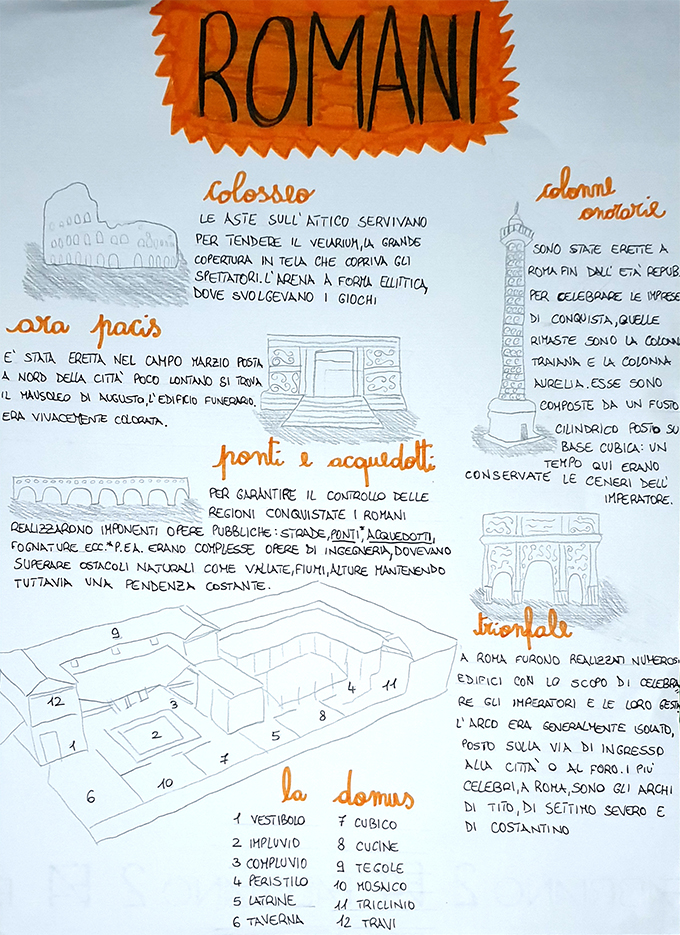 ROMANI
colosseo
LE ASTE SULL'ATTICO SERVIVANO
PER TENDERE IL VELARIUM, LA GRANDE
COPERTURA IN TELA CHE COPRIVA GLI
SPETTATORI. L'ARENA A FORMA ELLITTICA,
DOVE SVOLGEVANO I GIOCHI
colonne
onorarie
SONO STATE ERETTE A
ROMA FIN DALL'ETÀ REPUB.
PER CELEBRARE LE IMPRESE
DI CONQUISTA, QUELLE
RIMASTE SONO LA COLONN
TRAIANA E LA COLONNA
AURELIA. ESSE SONO
COMPOSTE DA UN FUSTO
CILINDRICO POSTO SU
BASE CUBICA: UN
TEMPO QUI ERANO
CONSERVATE LE CENERI DELL'
IMPERATORE.
ara pacis
E' STATA ERETTA NEL CAMPO MARZIO POSTA
A NORD DELLA CITTÀ POCO LONTANO SI TROVA
IL MAUSOLEO DI AUGUSTO, L'EDIFICIO FUNERARIO.
ERA VIVACEMENTE COLORATA.
ponti e acquedotti
PER GARANTIRE IL CONTROLLO DELLE
REGIONI CONQUISTATE I ROMANI
REALIZZARONO IMPONENTI OPERE PUBBLICHE: STRADE, PONTI*, ACQUEDOTTI,
FOGNATURE ECC.* P.EA. ERANO COMPLESSE OPERE DI INGEGNERIA, DOVEVANO
SUPERARE OSTACOLI NATURALI COME VALLATE, FIUMI, ALTURE MANTENENDO
TUTTAVIA UNA PENDENZA COSTANTE.
trionfale
A ROMA FURONO REALIZZATI NUMEROSI
EDIFICI CON LO SCOPO DI CELEBRA
RE GLI IMPERATORI E LE LORO GESTA
L'ARCO ERA GENERALMENTE ISOLATO,
POSTO SULLA VIA DI INGRESSO
ALLA CITTÀ O AL FORO. I PIÙ
CELEBRI, A ROMA, SONO GLI ARCHI
DI TITO, DI SETTIMO SEVERO E
DI COSTANTINO
9
12
3
4
11
1
2
8
5
7
6
10
la domus
1 VESTIBOLO
2 IMPLUVIO
3 COMPLUVIO
4 PERISTILO
5 LATRINE
6 TAVERNA
7 CUBICO
8 CUCINE
9 TEGOLE
10 MOSAICO
11 TRICLINIO
12 TRAVI